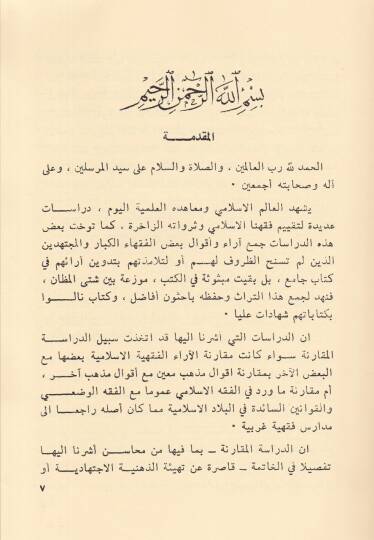 بسم الله الرحمن الرحيم
المقدمـــة
الحمد لله رب العالمين . والصلاة والسلام على سيد المرسلين ، وعلى
آله وصحابته أجمعين .
يشهد العالم الاسلامي ومعاهده العلمية اليوم ، دراسات
عديدة لتقييم فقهنا الاسلامي وثرواته الزاخرة . كما توخت بعض
هذه الدراسات جمع آراء وأقوال بعض الفقهاء الكبار والمجتهدين
الذين لم تسنح الظروف لهم أو لتلامذتهم بتدوين آرائهم في
كتاب جامع ، بل بقيت مبثوثة في الكتب ، موزعة بين شتى المظان ،
فنهد لجمع هذا التراث وحفظه باحثون أفاضل ، وكتاب نالــوا
بكتاباتهم شهادات عليا .
ان الدراسات التي أشرنا اليها قد اتخذت سبيل الدراسة
المقارنة سواء كانت مقارنة الآراء الفقهية الاسلامية بعضها مع
البعض الآخر بمقارنة اقوال مذهب معين مع أقوال مذهب آخر ،
أم مقارنة ما ورد في الفقه الاسلامي عموما مع الفقه الوضعــي
والقوانين السائدة في البلاد الاسلامية مما كان أصله راجعــا الى
مدارس فقهية غربية .
ان الدراسة المقارنة ــ بما فيها من محاسن أشرنا اليها
تفصيلا في الخاتمة ــ قاصرة عن تهيئة الذهنية الاجتهادية أو
٧